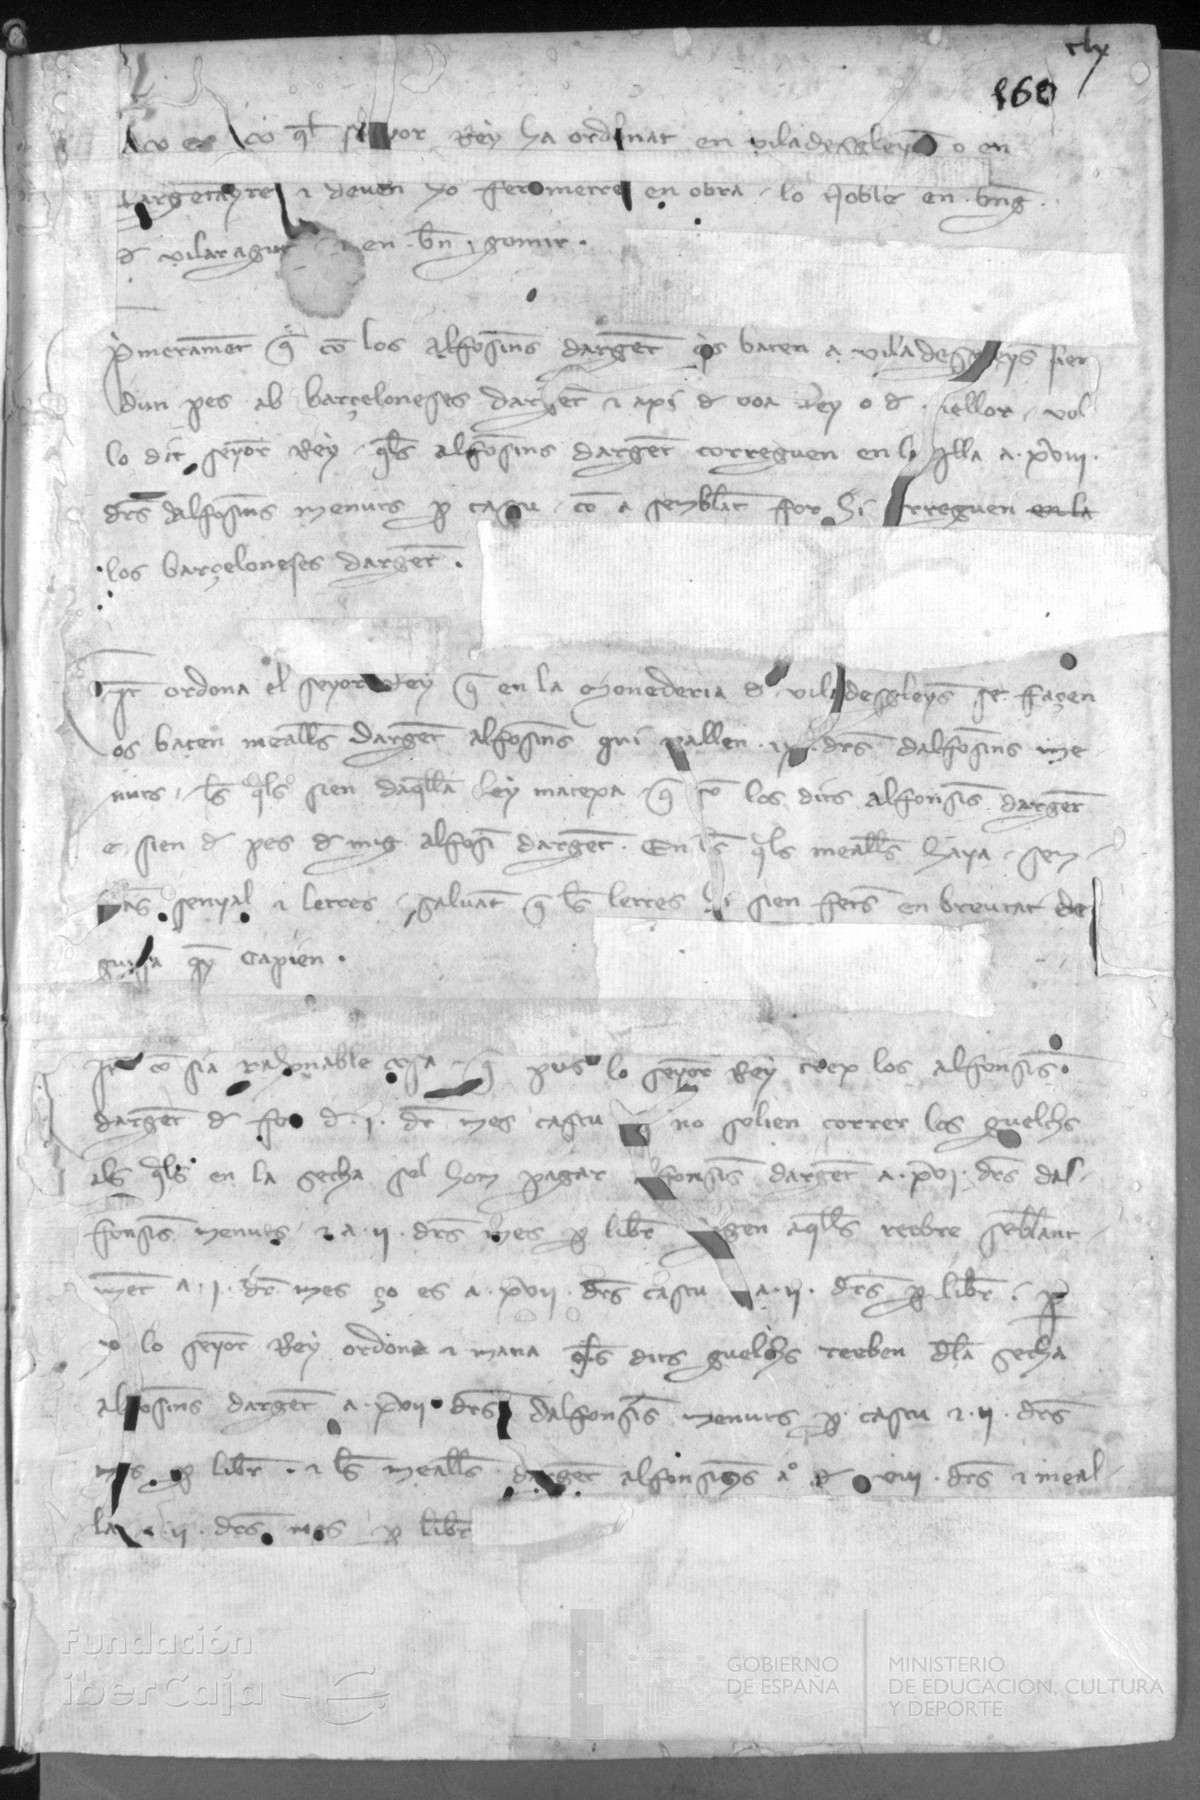 clx
160
Aço es ço q̄l senyor Rey ha ordonat en viladesgleyes o en
largentayre & deuen ho fer o metre en obra lo Noble en .bn̄g.
d vilaragut & en .bn̄. gomir.
P̄meramēt q̄ cō los alfosīns dargēt q̄s baten a viladesgleyēs sien
dun pes ab barçeloneses dargēt & axi d voa Rey o d mellor vol
lo dit seyor Rey q̄ls alfosīns dargēt correguen en la ylla a .xviii.
drs̄ dalfosīns menuts p cascu cō a semblāt for hi correguen en la
los barçeloneses dargēt.
It̄ ordona el seyor Rey q̄ en la monederia d viladesgleyēs se façen
os baten meall̄s dargēt alfosīns qui vallen .ix. drs̄ dalfosīns me
nuts, ls̄ q̄ls sien daq̄lla ley matexa q̄ sō los dits alfonsīs dargēt
e sien d pes d mig alfosī dargēt. En ls̄ q̄ls meall̄s haya sem
blās senyal & letres saluāt q̄ ls̄ letres hi sien fetēs en breutat de
guisa q̄ y capien.
It̄ cō sia rahonable cosa q̄ pus lo seyor Rey creex los alfonsīs
dargēt d for d .i. dr̄ mes cascu q̄ no solien correr los guelchs
als q̄ls en la secha sol hom pagar alfonsīs dargēt a .xvi. drs̄ dal
fonsīs menuts & a .ii. drs̄ mes p libr̄ degen aq̄ll̄s reebre semblant
mēt a .i. dr̄ mes ço es a .xvii. drs̄ cascu & a .ii. drs̄ p libr̄. p
ço lo seyor Rey ordona & mana q̄ls dits guelchs reeben dla secha
alfosīns dargēt a .xvii. drs̄ dalfonsīs menuts p cascu & .ii. drs̄
mes p libr̄. & ls̄ meall̄s dargēt alfonsīns a d viii. drs̄ & meal
la & .ii. drs̄ mes p libr̄
Fundación
iberCaja
GOBIERNO
DE ESPAÑA
MINISTERIO
DE EDUCACIÓN, CULTURA
Y DEPORTE